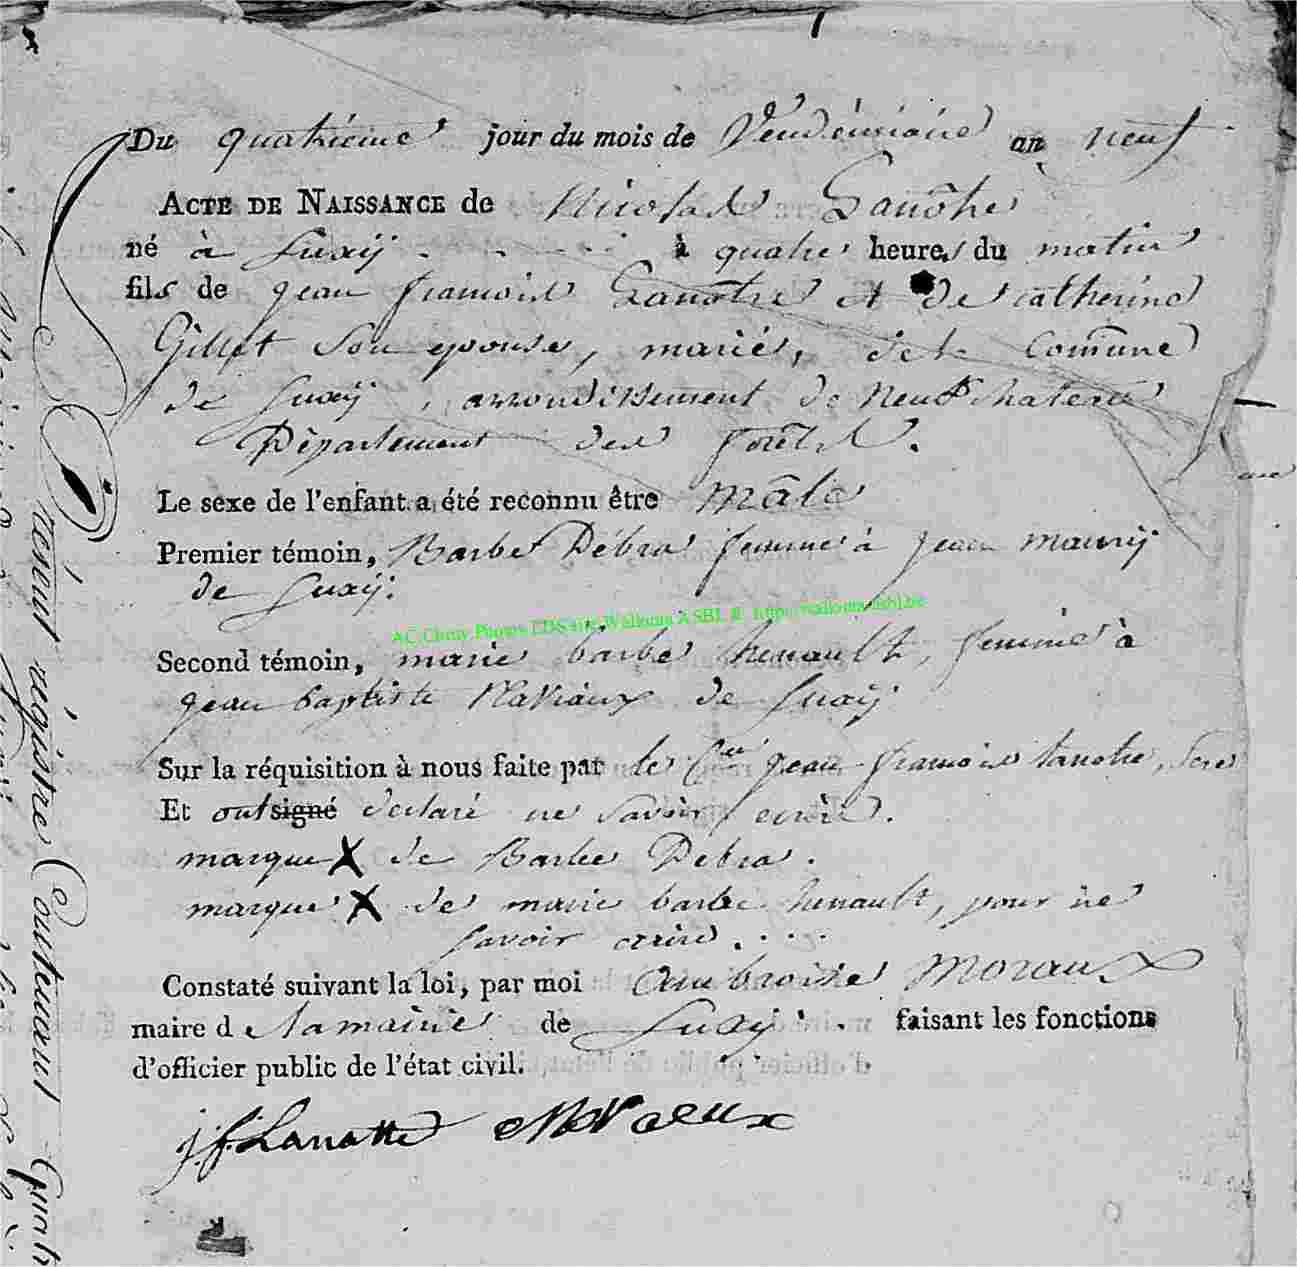 Du quatrième jour du mois de Vendémiaire an neuf
ACTE DE NAISSANCE de Nicolas Lanôtre
né à Suxÿ à quatre heures du matin
fils de jean françois Lanôtre et de catherine
Gillet Son epouse, mariés, de la Comūne
de Suxÿ, arrondissement de Neufchateau
Département des forêts.
Le sexe de l'enfant a été reconnu être mâle
Premier témoin, Barbe Debra femme à jean maury
de Suxÿ.
AC Chiny Photos LDS site Wallonia ASBL
Second témoin, marie barbe henault, femme à
jean baptiste de Suxÿ
Sur la réquisition à nous faite par le Cen jean françois lanotre, père
Et ont signé declaré ne savoir ecrire.
marque X de Barbe Debra.
marque X de marie barbe henault, pour ne
savoir ecrire. . . .
Constaté suivant la loi, par moi Ambroise Moraux
maire d lamairie de Suxÿ. faisant les fonctions
d'officier public de l'état civil.
j.f. Lanotte Moraux
présent régistre Contenant quatr